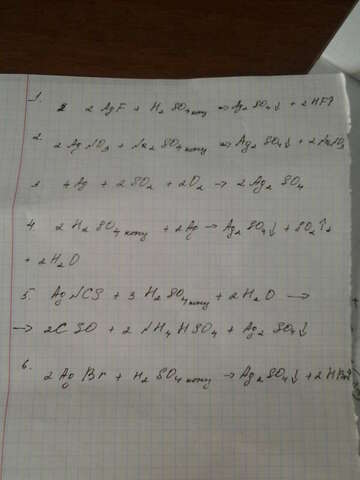 1. 2 AgF + H2SO4 конц → Ag2SO4↓ + 2HF↑
2. 2 AgNO3 + Na2SO4 конц → Ag2SO4↓ + 2NaNO3
3. 4Ag + 2SO2 + 2O2 → 2Ag2SO4
4. 2H2SO4 конц + 2Ag → Ag2SO4↓ + SO2↑ +
+ 2H2O
5. AgNCS + 3 H2SO4 конц + 2H2O →
→ 2CSO + 2NH4HSO4 + Ag2SO4↓
6. 2AgBr + H2SO4 конц → Ag2SO4↓ + 2HBr↑